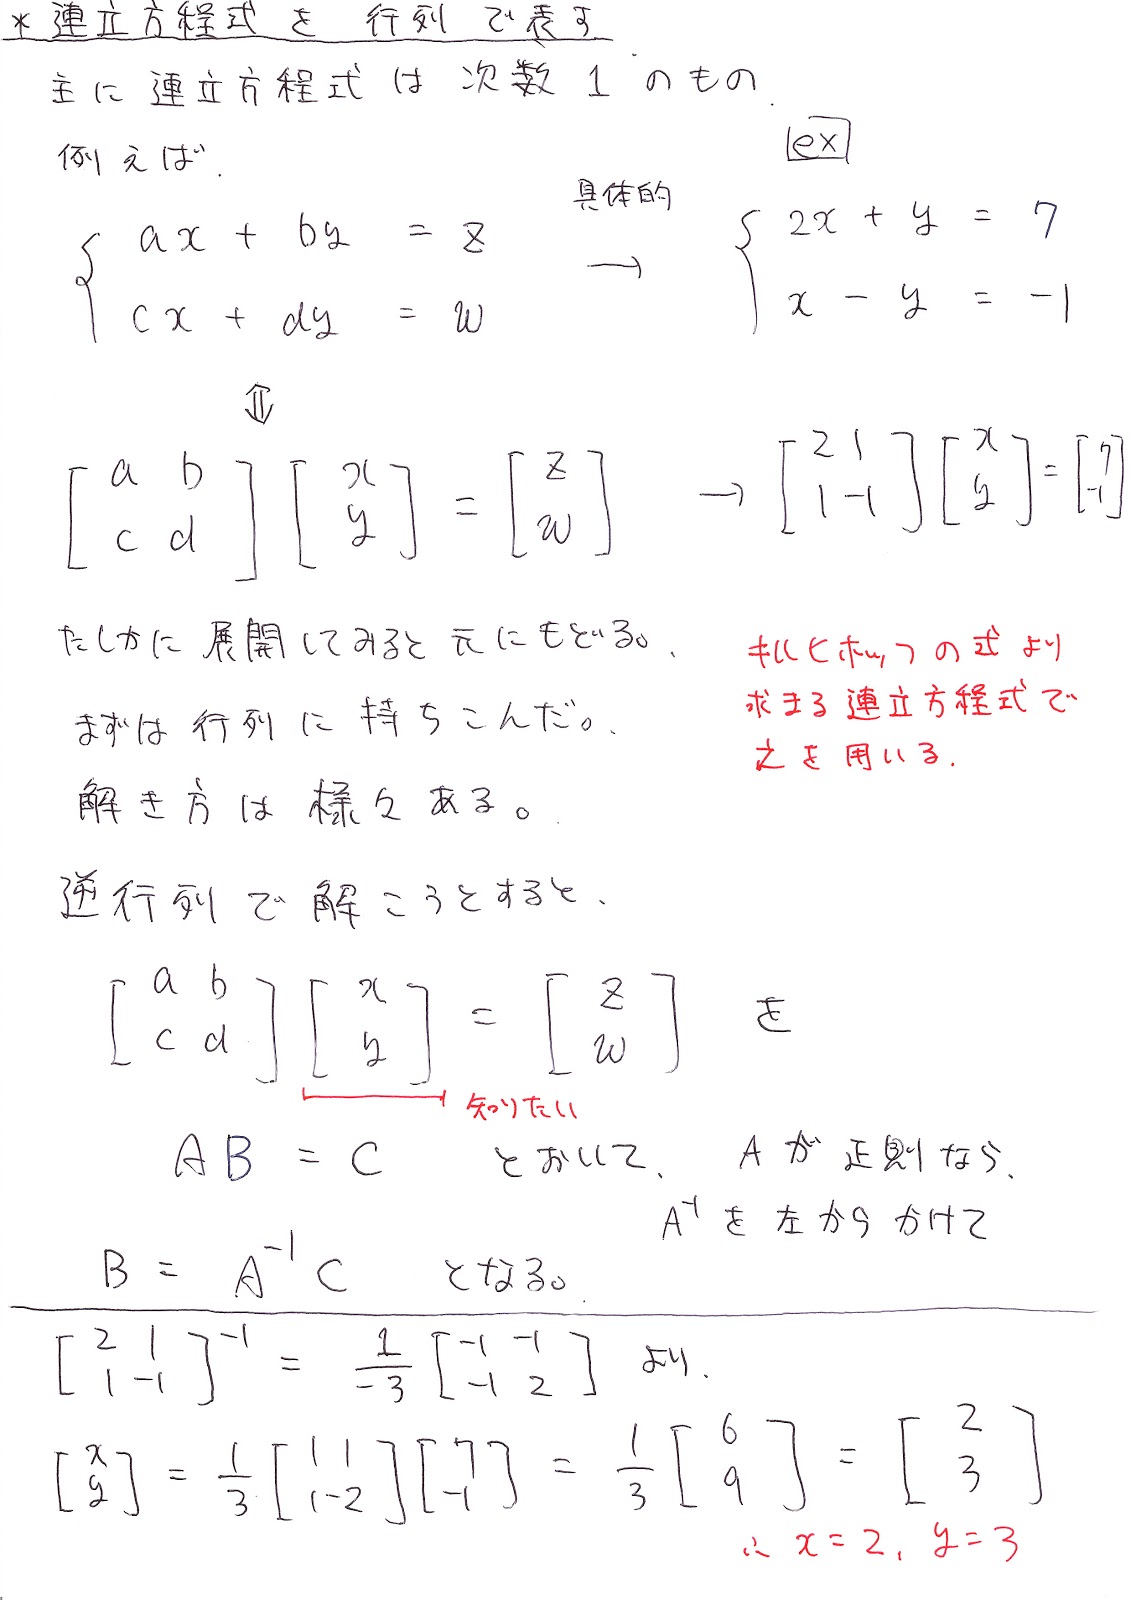 * 連立方程式 を 行列 で 表す
主に 連立方程式 は 次数 1 のもの.
例えば.
ex
具体的
{ ax + by = z
cx + dy = w
→
{ 2x + y = 7
x - y = -1
⇕
[ a b
c d ] [ x
y ] = [ z
w ]
→ [ 2 1
1 -1 ] [ x
y ] = [ 7
-1 ]
たしかに 展開してみると 元にもどる。
まずは 行列 に 持ちこんだ。
解き方は 様々 ある。
キルヒホッフの式より
求まる 連立方程式で
之を用いる.
逆行列 で 解こうとすると、
[ a b
c d ] [ x
y ] = [ z
w ] を
知りたい
AB = C とおいて、 Aが 正則 なら、
A⁻¹ を 左から かけて
B = A⁻¹ C となる。
[ 2 1
1 -1 ]⁻¹ = 1/-3 [ -1 -1
-1 2 ] より.
[ x
y ] = 1/3 [ 1 1
1 -2 ] [ 7
-1 ] = 1/3 [ 6
9 ] = [ 2
3 ]
∴ x = 2, y = 3